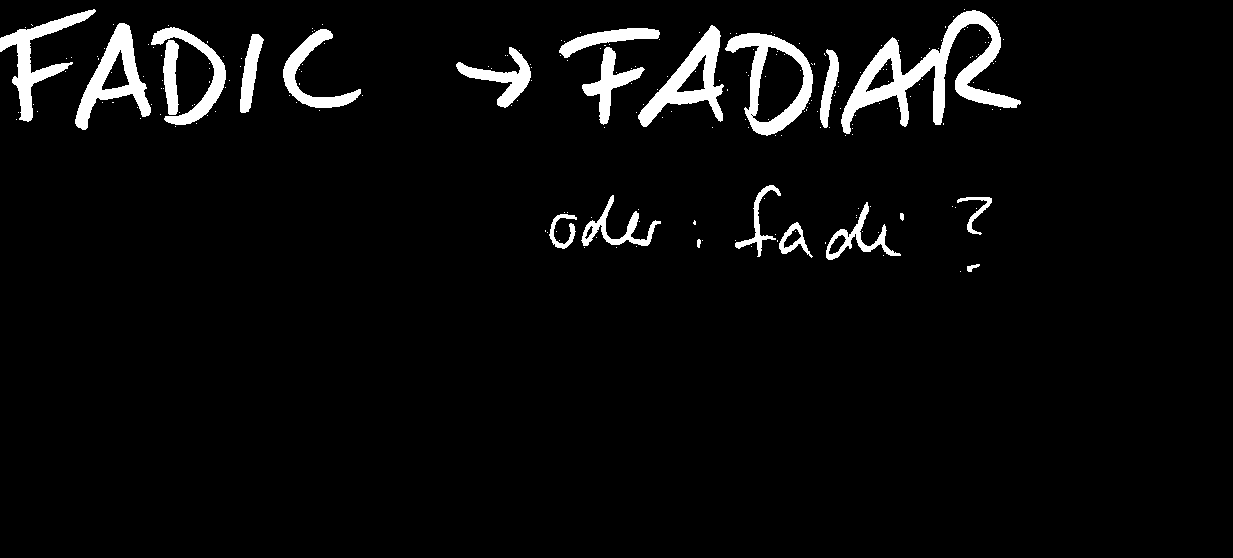 FADIC → FADIAR
oder : fadi ?